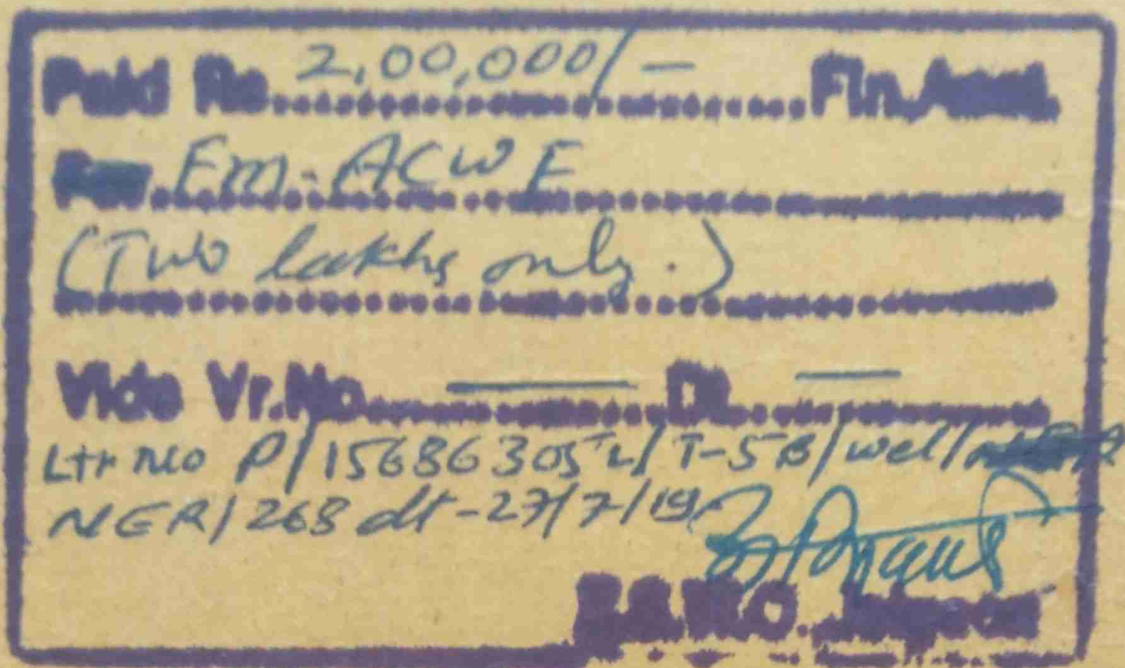 Paid Rs. 2,00,000/- Fin. Asst.
Em-ACWF
(Two lakhs only.)
Vide Vr.No. — Dt. —
Ltr No P/15686305L/T-5B/wel/
NER/268 dt-27/7/19